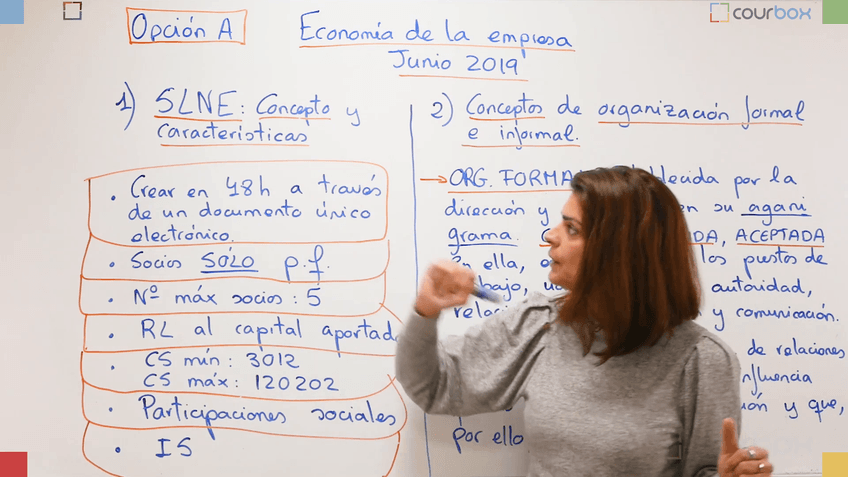 courbox
Opción A
Economía de la empresa
Junio 2019
1) SLNE: Concepto y
características
• Crear en 48h a través
de un documento único
electrónico.
• Socios SÓLO p.f.
• Nº máx socios: 5
• RL al capital aportado
• CS mín: 3012
CS máx: 120202
• Participaciones sociales
• IS
2) Conceptos de organización formal
e informal.
→ ORG. FORMA blecida por la
dirección y en su agani
grama. DA, ACEPTADA
en ella, los puestos de
bajo, autoridad,
relaci y comunicación.
de relaciones
nfluencia
ón y que,
por ello